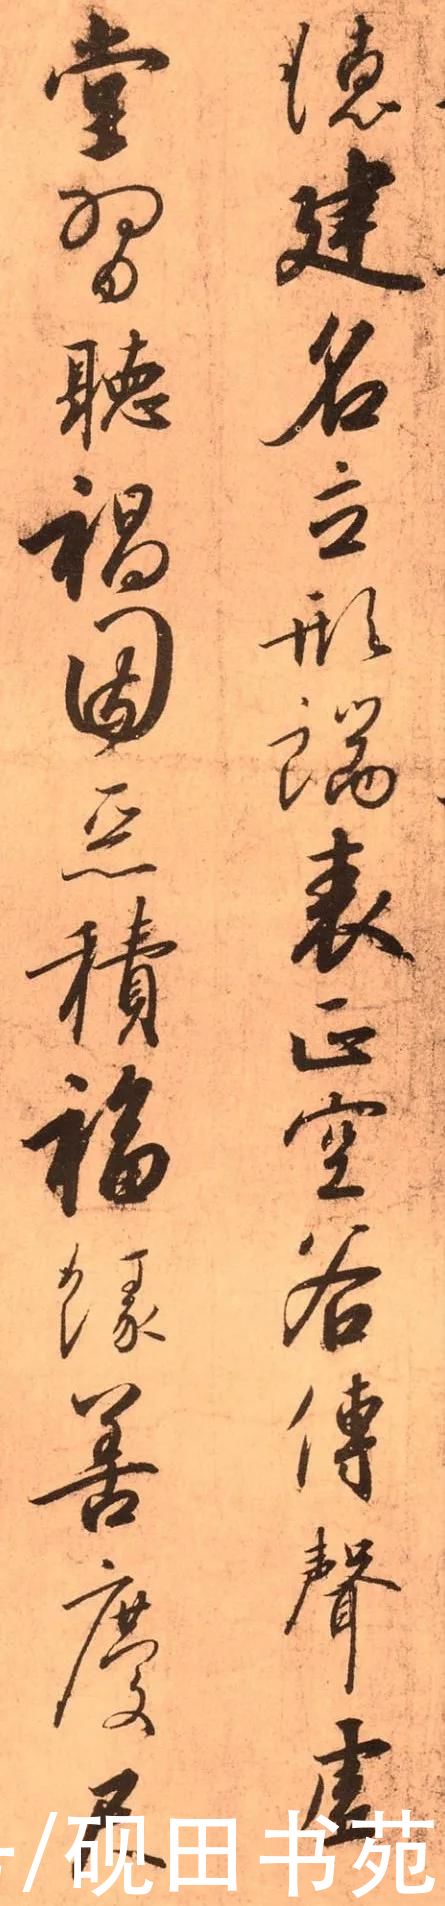 德建名立形端表正空谷傳聲虛
堂習聽禍因惡積福緣善慶尺
号/砚田书苑